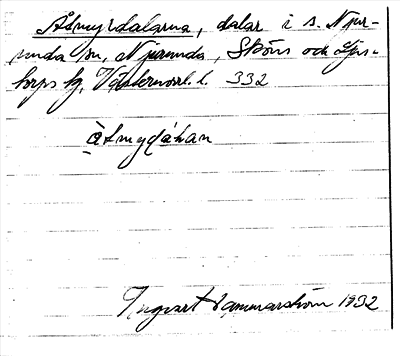 Åsmyrdalarna, dalar i s. Njur-
unda sn, Njurunda, Sköns och Ljus-
torps tg, Västernorrl. l. 332
åsmydáḷan
Ingvart Hammarström 1932